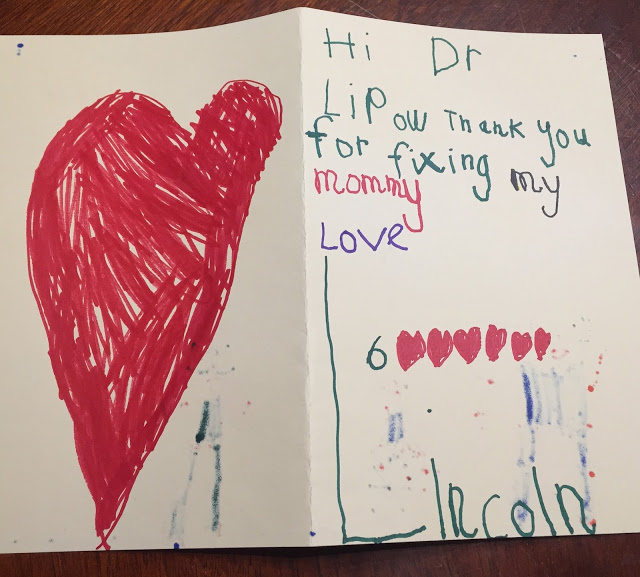 Hi Dr
Lipow Thank you
for fixing my
mommy
Love
6
Lincoln